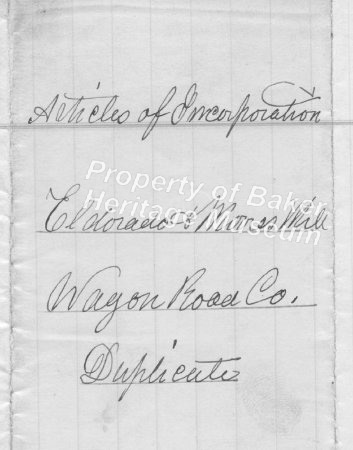 Articles of Incorporation
Property of Baker
Heritage Museum
Eldorado & Mill
Wagon Road Co.
Duplicate